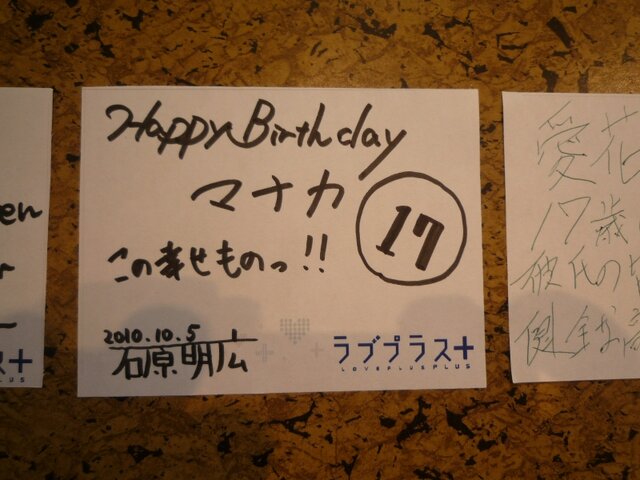 Happy Birthday
マナカ
17
この幸せものっ!!
2010.10.5
石原明広
ラブプラス+
LOVEPLUSPLUS
en
ラス+
PLUS
愛花
17歳
彼氏の
健全な